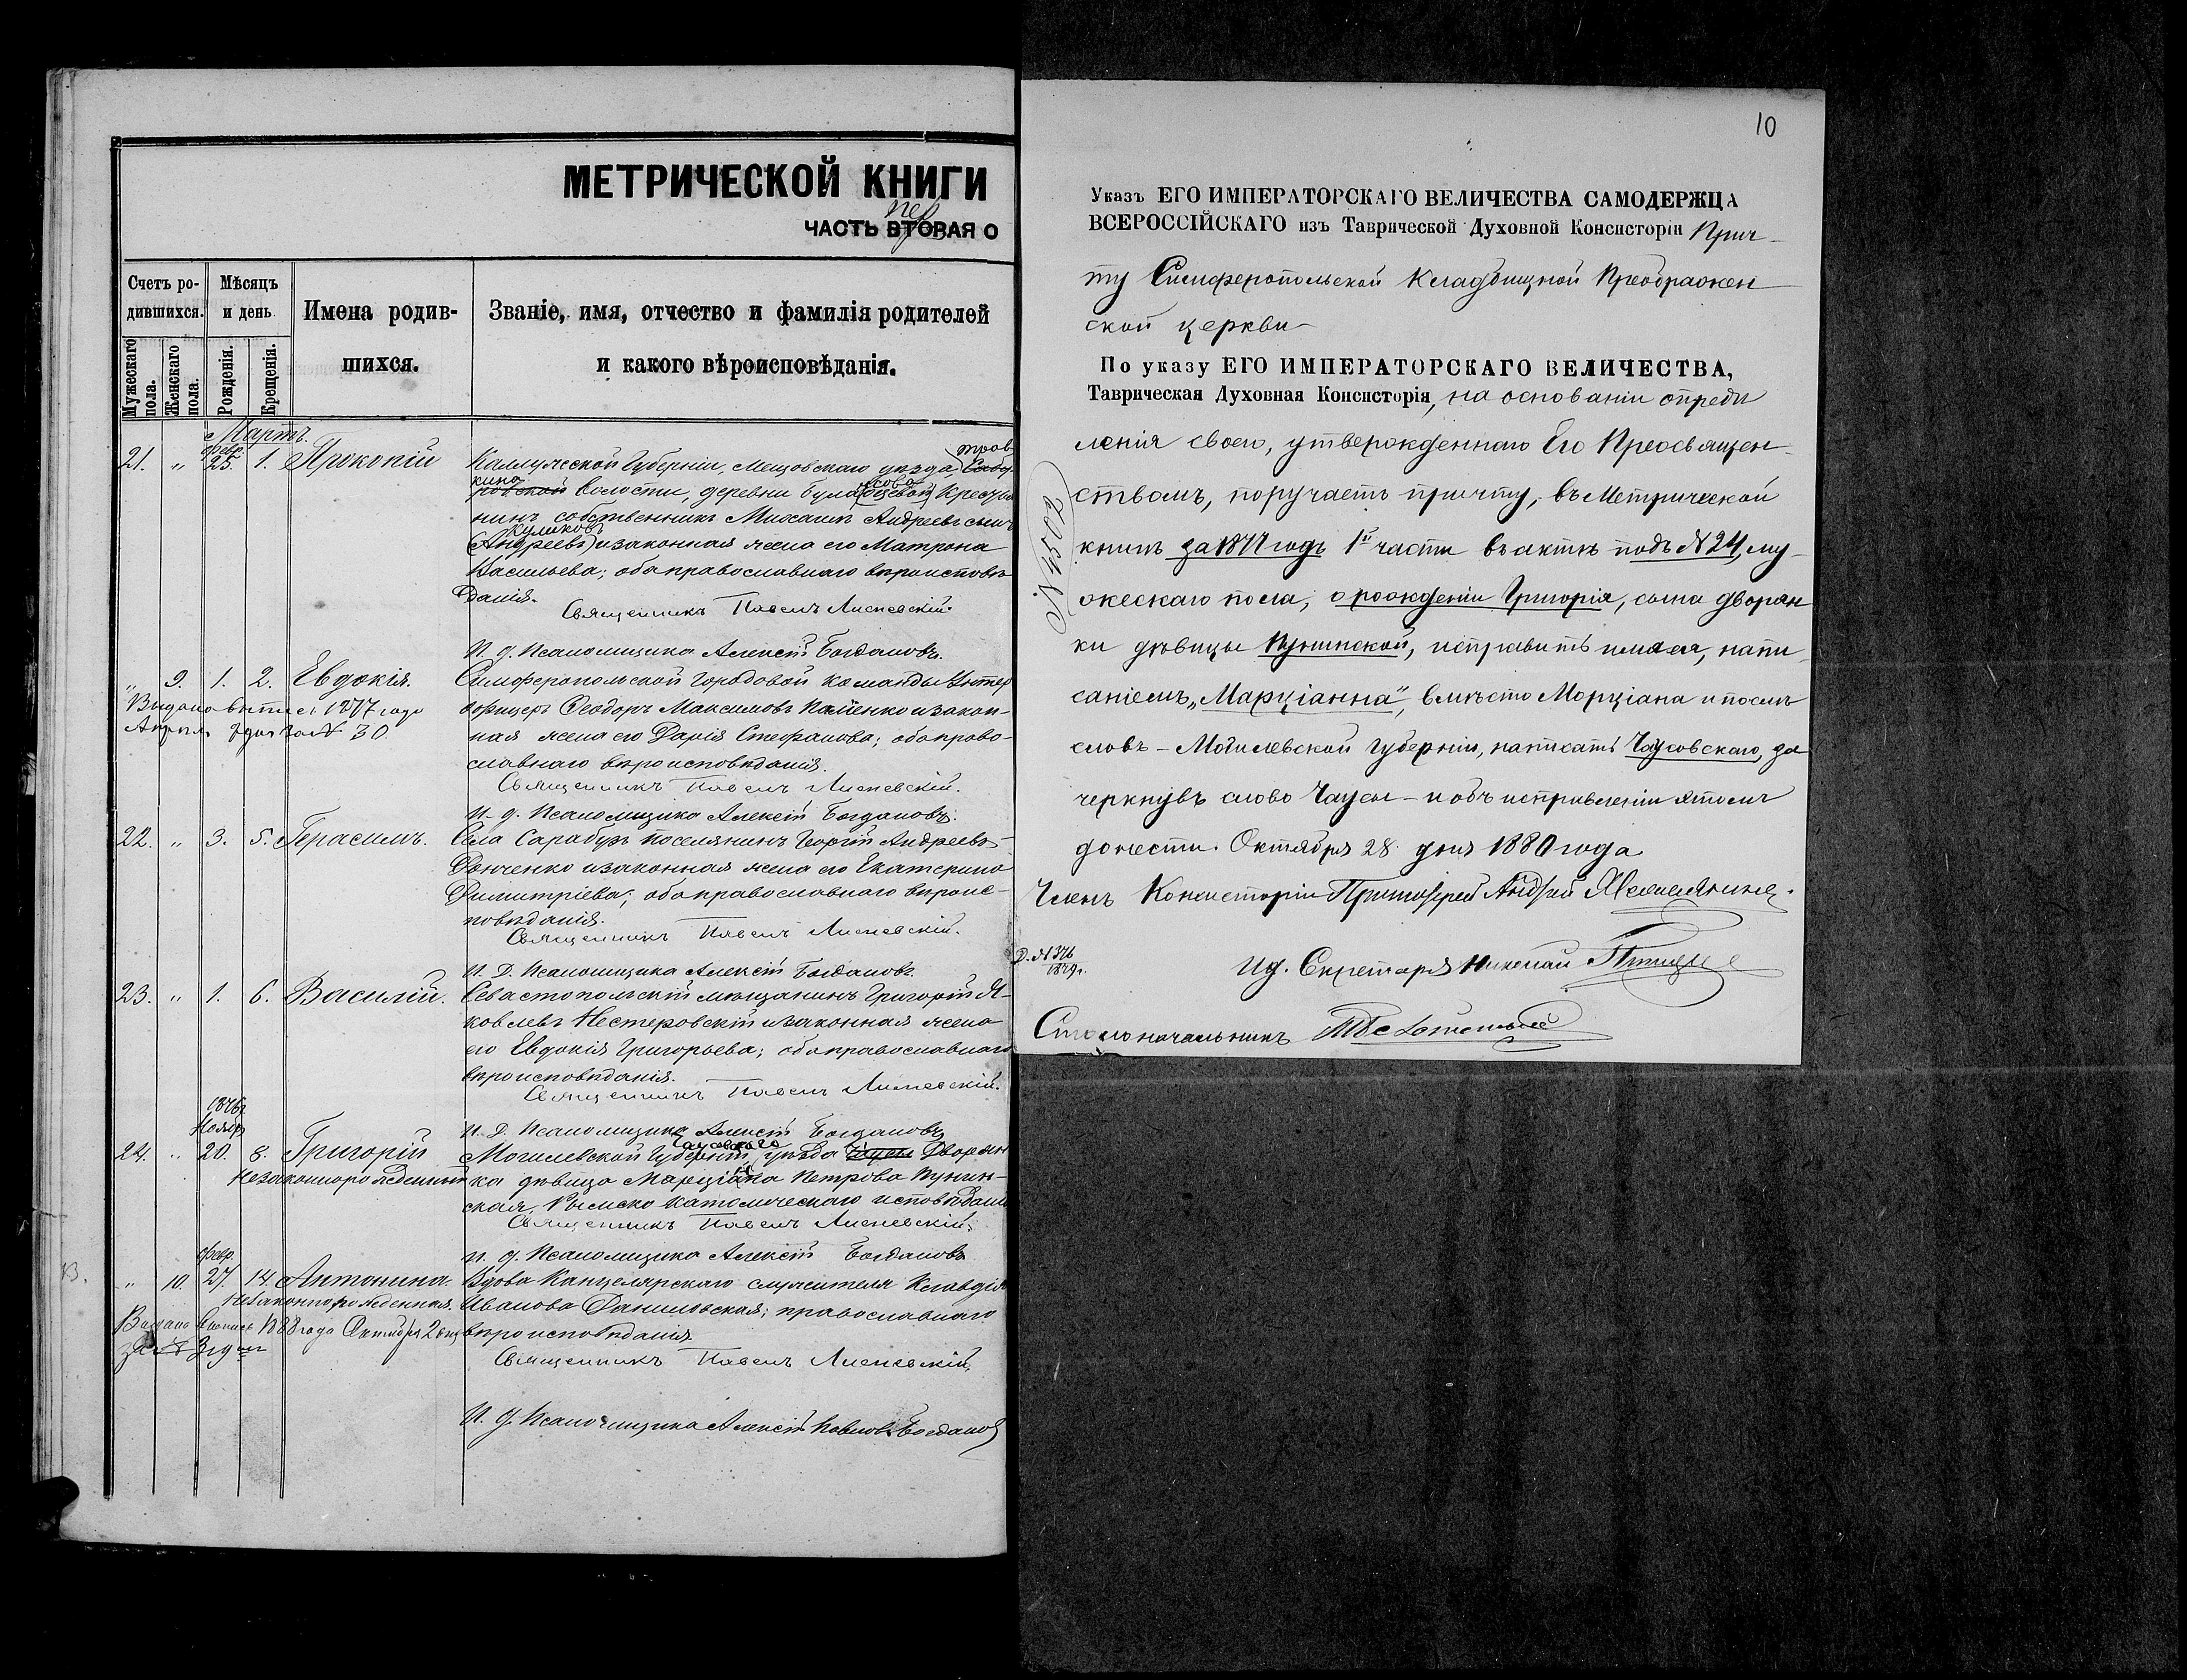 МЕТРИЧЕСКОЙ КНИГИ
пер
ЧАСТЬ ВТОРАЯ О
Счетъ ро-
дившихся.
Мѣсяцъ
и день
Имена родив-
шихся.
Званіе, имя, отчество и фамилія родителей
и какого вѣроисповѣданія.
Мужескаго пола.
Женскаго пола.
Рожденія.
Крещенія.
Мартъ.
февр.
21. " 25. 1. Прокопій
Каллужской Губерніи, Мещовскаго уѣзда,
волости, деревни
нинъ собственникъ Михаилъ Андреевъ сынъ
Куликовъ
(Андреевъ) и законная жена его Матрона
Васильева; оба православнаго вѣроисповѣ
данія.
Священникъ Павелъ Лисневскій.
И. д. Псаломщика Алексѣй Богдановъ.
" 9. 1. 2. Евдокія.
Симферопольской городовой команды Унтер
офицеръ Ѳеодоръ Максимовъ и закон-
ная жена его Дарія Стефанова; оба право-
славнаго вѣроисповѣданія.
Выдано выпись 1877 года
Апрѣля 7 дня за № 30.
Священникъ Павелъ Лисневскій.
И. д. Псаломщика Алексѣй Богдановъ.
22. " 3. 5. Герасимъ.
Села Сарабузъ поселянинъ Георгій Андреевъ
Донченко и законная жена его Екатерина
Димитріева; оба православнаго вѣроис-
повѣданія.
Священникъ Павелъ Лисневскій.
И. Д. Псаломщика Алексѣй Богдановъ.
23. " 1. 6. Василій.
Севастопольскій мѣщанинъ Григорій Я-
ковлевъ Нестеровскій и законная жена
его Евдокія Григорьева; оба православнаго
вѣроисповѣданія.
Священникъ Павелъ Лисневскій.
И. Д. Псаломщика Алексѣй Богдановъ
1876г
Ноябр
24. " 20. 8. Григорій
Незаконнорожденный
Чаусовскаго
Могилевской Губерніи, уѣзда Чаусы Дворян
ка дѣвица Марціанна Петрова Пунин-
ская, Римско католическаго исповѣдані
Священникъ Павелъ Лисневскій.
И. д. Псаломщика Алексѣй Богдановъ
февр.
" 10. 27. 14. Антонина.
Незаконнорожденная.
Вдова Канцелярскаго служителя Клавдія
Иванова Даниловская; православнаго
вѣроисповѣданія.
Выдана выпись 1888 года Октября 2 дня
за №
Священникъ Павелъ Лисневскій.
И. д. Псаломщика Алексѣй Павловъ Богданов
10
Указъ ЕГО ИМПЕРАТОРСКАГО ВЕЛИЧЕСТВА САМОДЕРЖЦА
ВСЕРОССІЙСКАГО изъ Таврической Духовной Консисторіи Прич-
ту Симферопольской Кладбищной Преображен
ской церкви
По указу ЕГО ИМПЕРАТОРСКАГО ВЕЛИЧЕСТВА,
Таврическая Духовная Консисторія, на основаніи опредѣ
ленія своего, утвержденнаго Его Преосвящен-
ствомъ, поручаетъ причту, въ Метрической
книгѣ за 1877 годъ 1й части въ актѣ подъ № 24, му-
жескаго пола, о рожденіи Григорія, сына дворян
ки дѣвицы Пунинской, исправить имя ея, напи
саніемъ „Марціанна", вмѣсто Марціана и послѣ
словъ - Могилевской губерніи, написать Чаусовскаго, за
черкнувъ слово Чаусы - и объ исправленіи этомъ
донести. Октября 28 дня 1880 года
Членъ Консисторіи Протоіерей Андрей
Д. № 376
1879г.
Ид. Секретаря Николай
Столоначальникъ